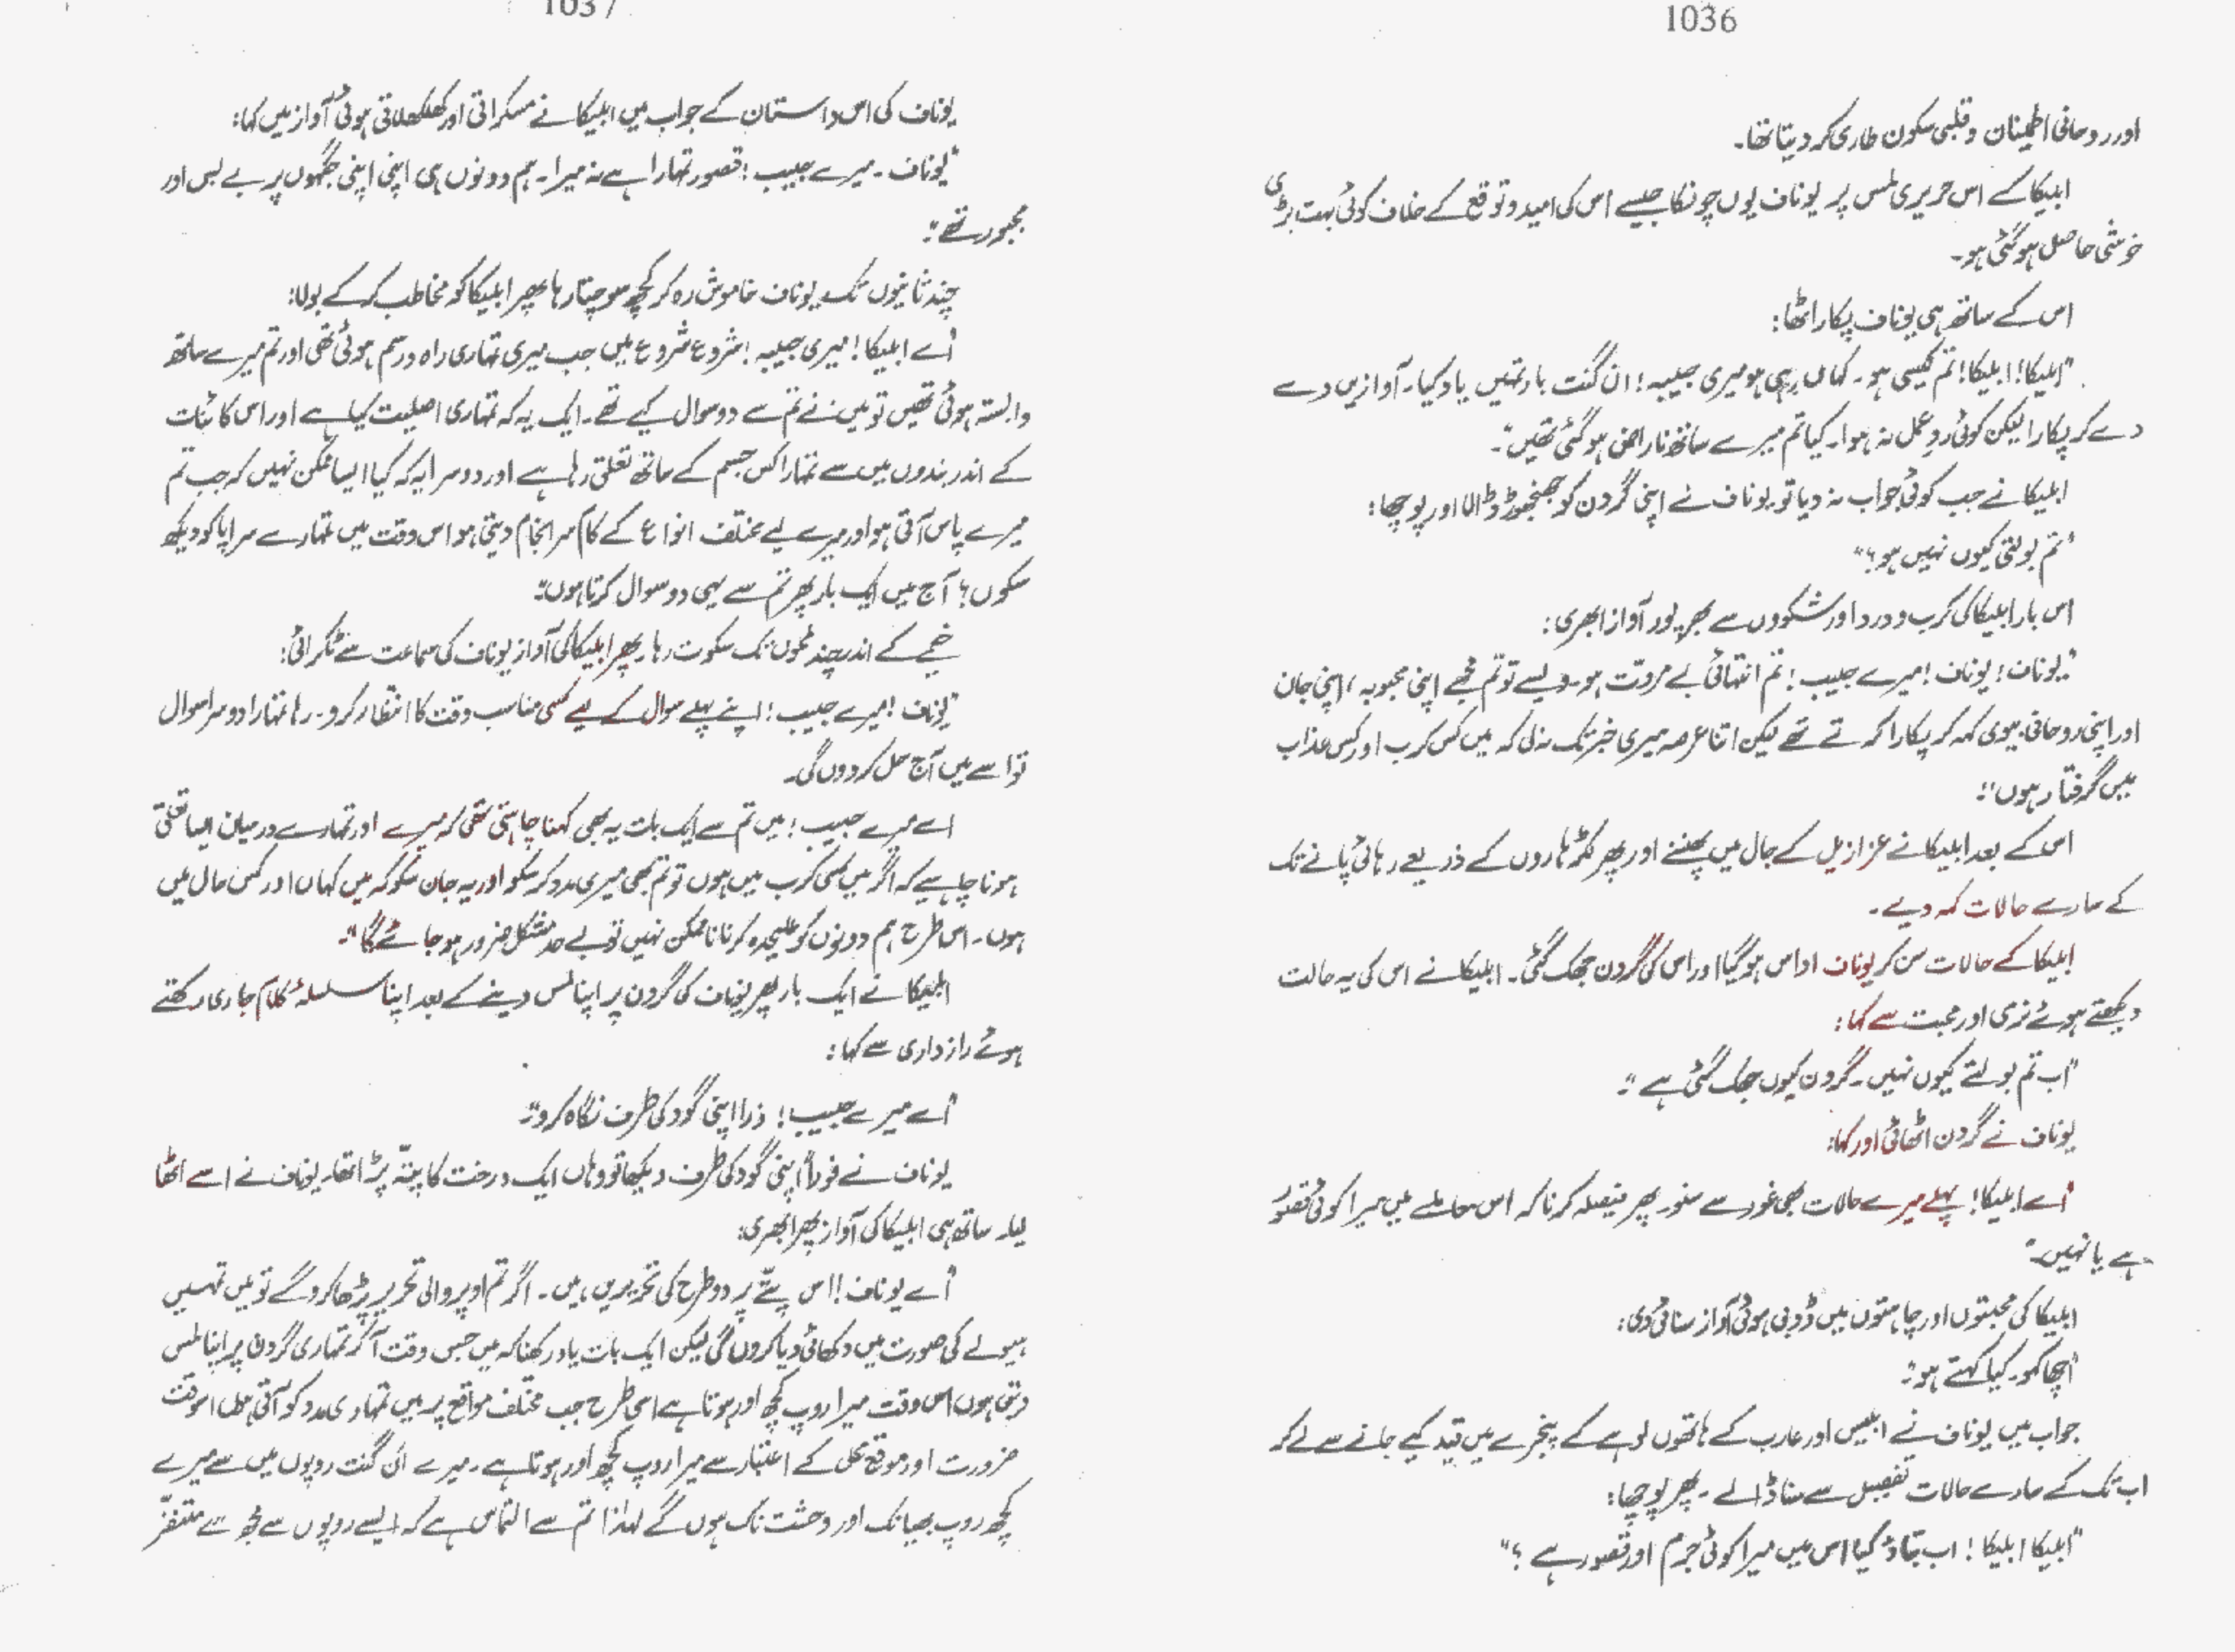 1036
اور روحانی اطمینان و قلبی سکون طاری کر دیتا تھا۔
ابلیکا کے اس حریری لمس پر یوناف یوں چونکا جیسے اس کی امید و توقع کے خلاف کوئی بہت بڑی
خوشی حاصل ہو گئی ہو۔
اس کے ساتھ ہی یوناف پکار اٹھا:
"ابلیکا! ابلیکا! تم کیسی ہو۔ کہاں رہی ہو میری حبیبہ! ان گنت بار تمہیں یاد کیا۔ آوازیں دے
دے کر پکارا لیکن کوئی ردِ عمل نہ ہوا۔ کیا تم میرے ساتھ ناراض ہو گئی تھیں"۔
ابلیکا نے جب کوئی جواب نہ دیا تو یوناف نے اپنی گردن کو جھنجھوڑ ڈالا اور پوچھا:
"تم بولتی کیوں نہیں ہو؟"
اس بار ابلیکا کی کرب و درد اور شکووں سے بھرپور آواز ابھری:
"یوناف! یوناف! میرے حبیب! تم انتہائی بے مروت ہو۔ ویسے تو تم مجھے اپنی محبوبہ، اپنی جان
اور اپنی روحانی بیوی کہہ کر پکارا کرتے تھے لیکن اتنا عرصہ میری خبر تک نہ لی کہ میں کس کرب اور کس عذاب
میں گرفتار ہوں"۔
اس کے بعد ابلیکا نے عزازیل کے جال میں پھنسنے اور پھر لکڑہاروں کے ذریعے رہائی پانے تک
کے سارے حالات کہہ دیے۔
ابلیکا کے حالات سن کر یوناف اداس ہو گیا اور اس کی گردن جھک گئی۔ ابلیکا نے اس کی یہ حالت
دیکھتے ہوئے نرمی اور محبت سے کہا:
"اب تم بولتے کیوں نہیں۔ گردن کیوں جھک گئی ہے"۔
یوناف نے گردن اٹھائی اور کہا:
"اے ابلیکا! پہلے میرے حالات بھی غور سے سنو۔ پھر فیصلہ کرنا کہ اس معاملے میں میرا کوئی قصور
ہے یا نہیں۔"
ابلیکا کی محبتوں اور چاہتوں میں ڈوبی ہوئی آواز سنائی دی:
"اچھا کہو۔ کیا کہتے ہو"۔
جواب میں یوناف نے ابلیس اور عارب کے ہاتھوں لوہے کے پنجرے میں قید کیے جانے سے لے کر
اب تک کے سارے حالات تفصیل سے سنا ڈالے۔ پھر پوچھا:
"ابلیکا ابلیکا! اب بتاؤ کیا اس میں میرا کوئی جرم اور قصور ہے؟"
1037
یوناف کی اس داستان کے جواب میں ابلیکا نے مسکراتی اور کھلکھلاتی ہوئی آواز میں کہا:
"یوناف۔ میرے حبیب! قصور تمہارا ہے نہ میرا۔ ہم دونوں ہی اپنی اپنی جگہوں پر بے بس اور
مجبور تھے"۔
چند ثانیوں تک یوناف خاموش رہ کر کچھ سوچتا رہا پھر ابلیکا کو مخاطب کر کے بولا:
"اے ابلیکا! میری حبیبہ! شروع شروع میں جب میری تمہاری راہ و رسم ہوئی تھی اور تم میرے ساتھ
وابستہ ہوئی تھیں تو میں نے تم سے دو سوال کیے تھے۔ ایک یہ کہ تمہاری اصلیت کیا ہے اور اس کائنات
کے اندر بندوں میں سے تمہارا کس جسم کے ساتھ تعلق رہا ہے اور دوسرا یہ کہ کیا ایسا ممکن نہیں کہ جب تم
میرے پاس آتی ہو اور میرے لیے مختلف انواع کے کام سرانجام دیتی ہو اس وقت میں تمہارے سراپا کو دیکھ
سکوں؟ آج میں ایک بار پھر تم سے یہی دو سوال کرتا ہوں"۔
خیمے کے اندر چند لمحوں تک سکوت رہا۔ پھر ابلیکا کی آواز یوناف کی سماعت سے ٹکرائی:
"یوناف! میرے حبیب! اپنے پہلے سوال کے لیے کسی مناسب وقت کا انتظار کرو۔ رہا تمہارا دوسرا سوال
تو اسے میں آج حل کر دوں گی۔
اے میرے حبیب! میں تم سے ایک بات یہ بھی کہنا چاہتی تھی کہ میرے اور تمہارے درمیان ایسا تعلق
ہونا چاہیے کہ اگر میں کسی کرب میں ہوں تو تم بھی میری مدد کر سکو اور یہ جان سکو کہ میں کہاں اور کس حال میں
ہوں۔ اس طرح ہم دونوں کو علیحدہ کرنا ناممکن نہیں تو بے حد مشکل ضرور ہو جائے گا"۔
ابلیکا نے ایک بار پھر یوناف کی گردن پر اپنا لمس دینے کے بعد اپنا سلسلۂ کلام جاری رکھتے
ہوئے رازداری سے کہا:
"اے میرے حبیب! ذرا اپنی گود کی طرف نگاہ کرو"۔
یوناف نے فوراً اپنی گود کی طرف دیکھا تو وہاں ایک درخت کا پتّہ پڑا تھا۔ یوناف نے اسے اٹھا
لیا۔ ساتھ ہی ابلیکا کی آواز پھر ابھری:
"اے یوناف! اس پتّے پر دو طرح کی تحریریں ہیں۔ اگر تم اوپر والی تحریر پڑھا کرو گے تو میں تمہیں
ہیولے کی صورت میں دکھائی دیا کروں گی لیکن ایک بات یاد رکھنا کہ میں جس وقت آ کر تمہاری گردن پر اپنا لمس
دیتی ہوں اس وقت میرا روپ کچھ اور ہوتا ہے اسی طرح جب مختلف مواقع پر میں تمہاری مدد کو آتی ہوں اس وقت
ضرورت اور موقع محل کے اعتبار سے میرا روپ کچھ اور ہوتا ہے۔ میرے اَن گنت روپوں میں سے میرے
کچھ روپ بھیانک اور وحشت ناک ہوں گے لہٰذا تم سے التماس ہے کہ ایسے روپوں سے مجھ سے متنفّر